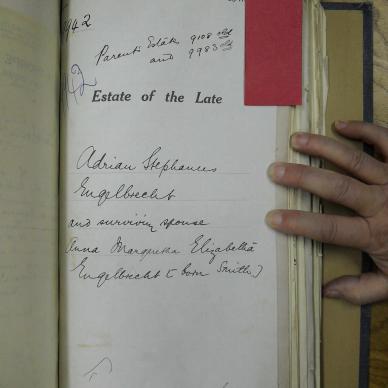 1942
Parent Estate 9108 old
and 9983 old
142
Estate of the Late
Adrian Stephanus
Engelbrecht
and surviving spouse
Anna Margretha Elizabetha
Engelbrecht (born Smith)